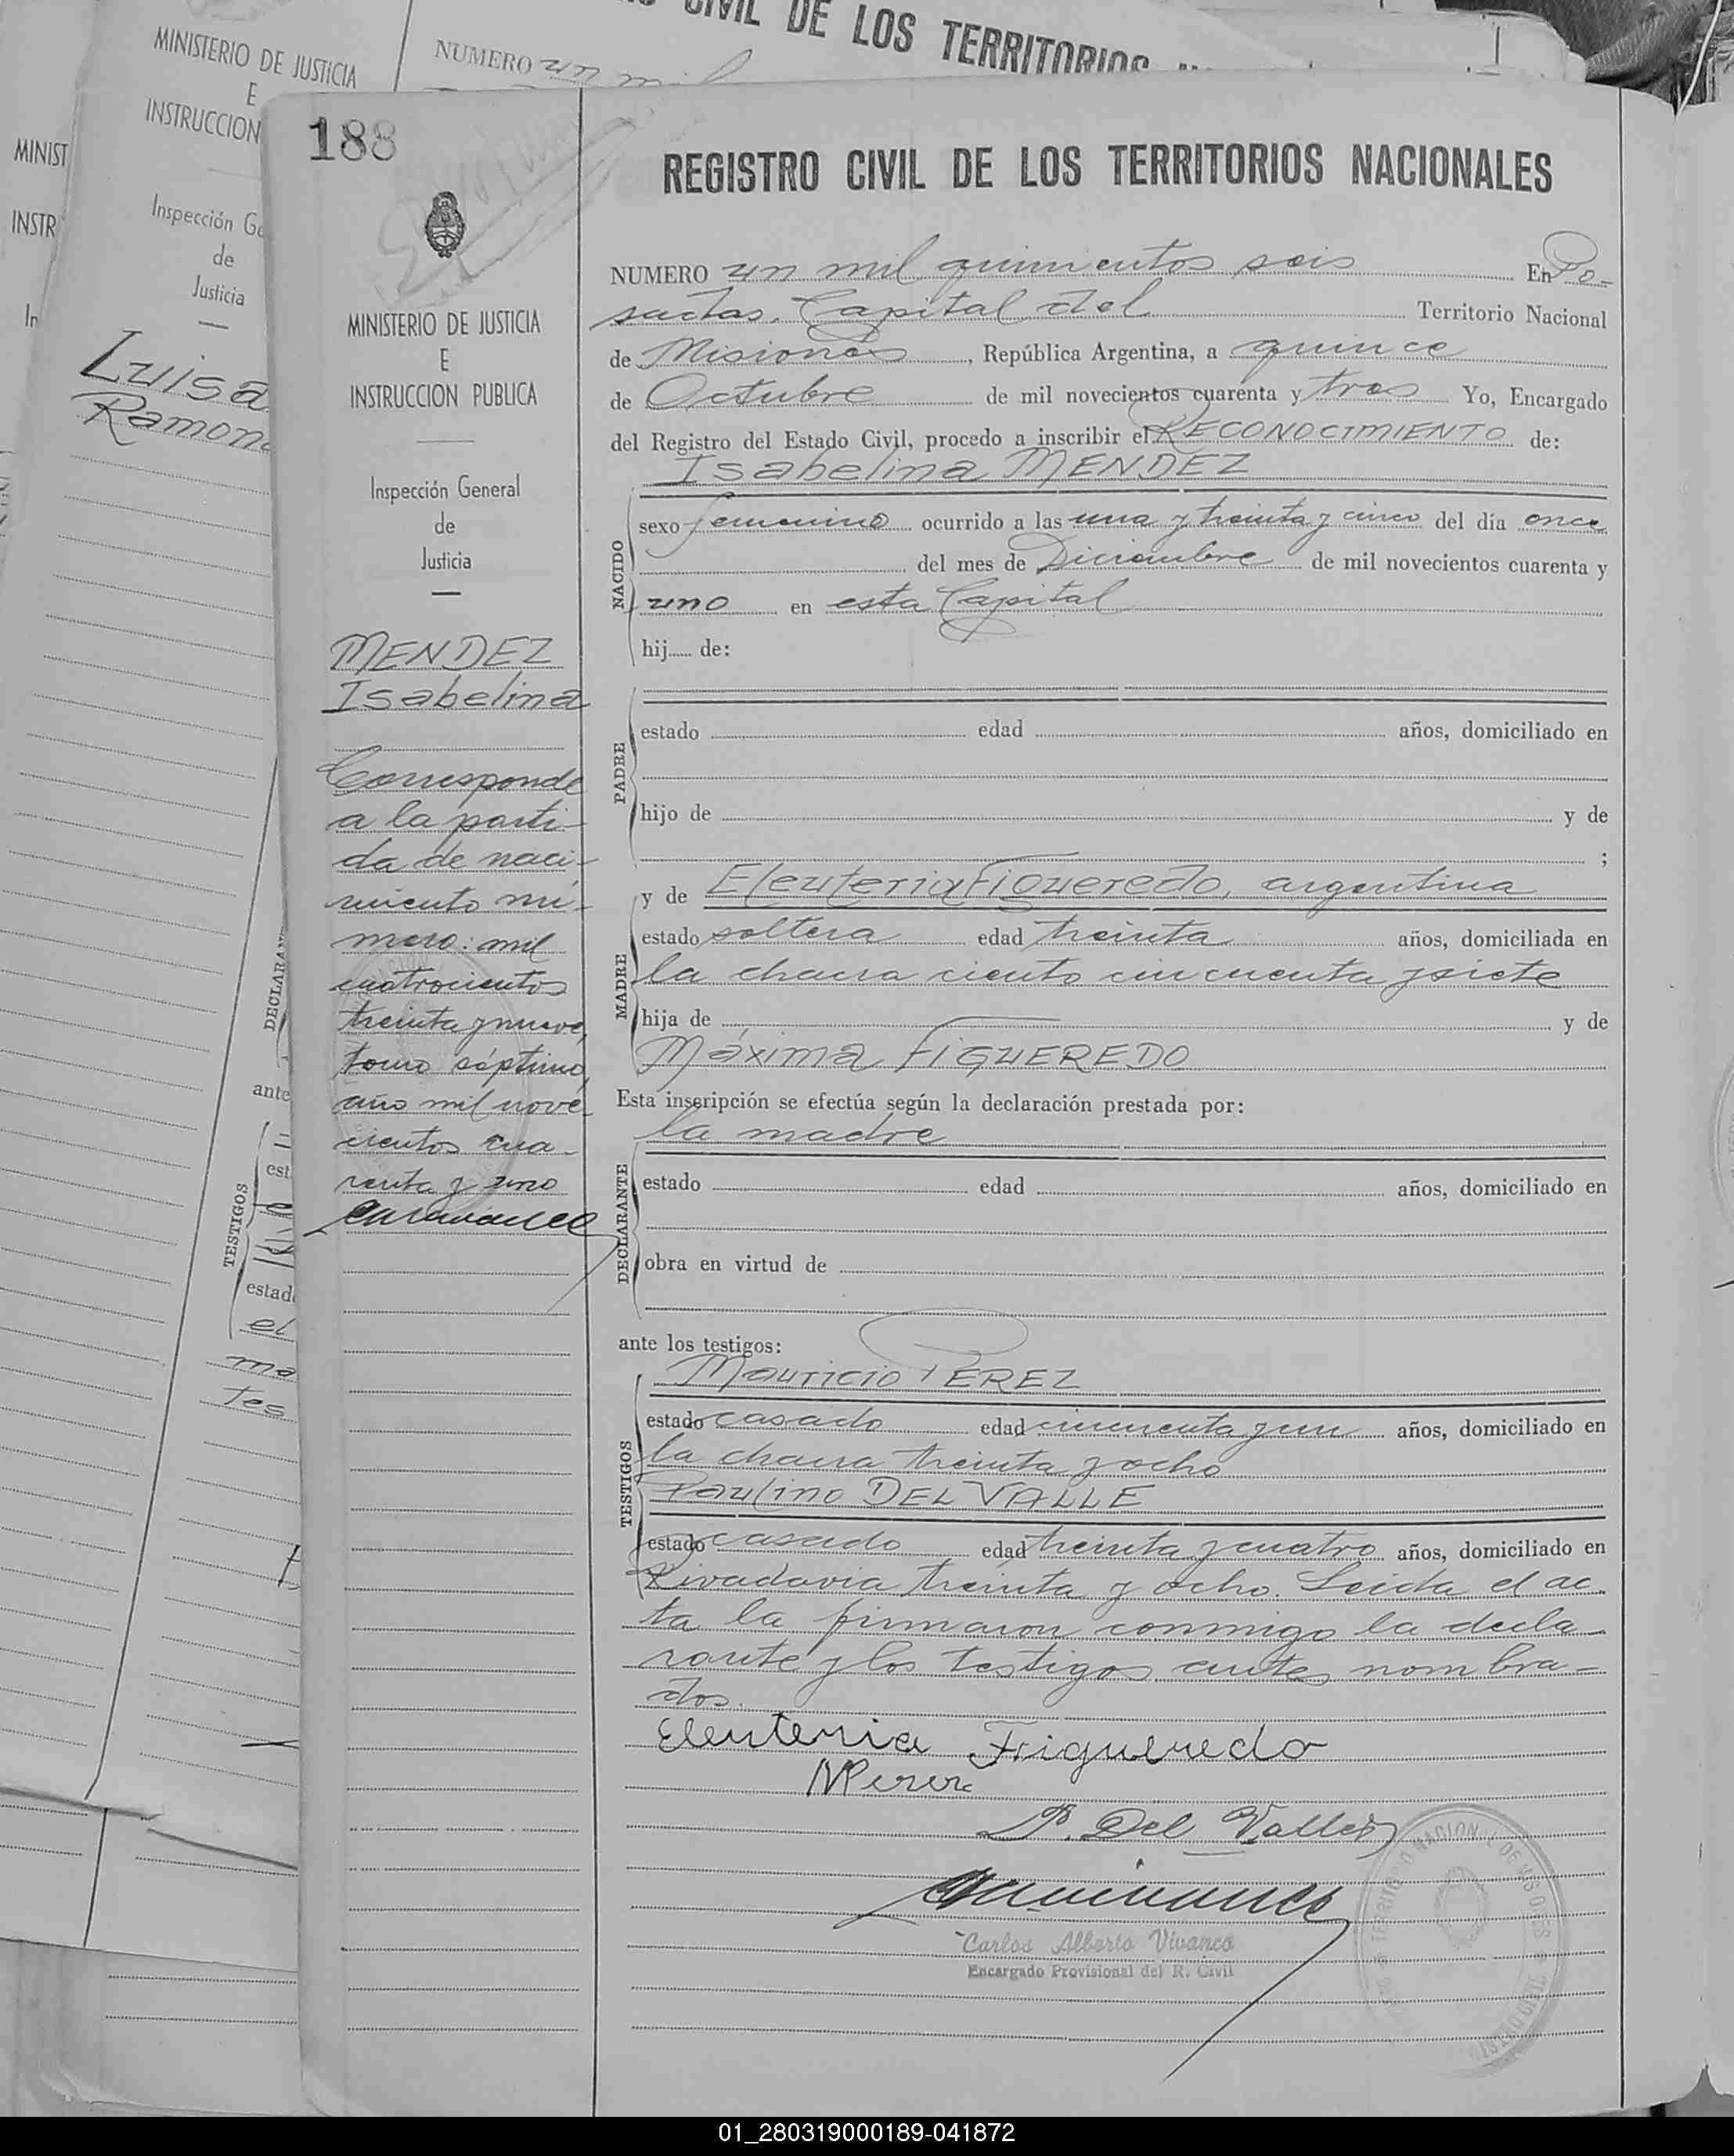 CIVIL DE LOS TERRITORIOS
MINISTERIO DE JUSTICIA
E
INSTRUCCION
NUMERO un mil
MINIST
INSTR
Inspección Ge
de
Justicia
In
Luisa
Ramona
DECLARAN
ante
TESTIGOS
est
estad
el
ma
tes
188
REGISTRO CIVIL DE LOS TERRITORIOS NACIONALES
MINISTERIO DE JUSTICIA
E
INSTRUCCION PUBLICA
Inspección General
de
Justicia
MENDEZ
Isabelina
Corresponde
a la parti-
da de naci-
miento nú-
mero: mil
cuatrocientos
treinta y nueve,
tomo séptimo,
año mil nove-
cientos cua-
renta y uno
NUMERO un mil quinientos seis En Po-
sadas, Capital del Territorio Nacional
de Misiones, República Argentina, a quince
de Octubre de mil novecientos cuarenta y tres Yo, Encargado
del Registro del Estado Civil, procedo a inscribir el RECONOCIMIENTO de:
Isabelina MENDEZ
NACIDO
sexo femenino ocurrido a las una y treinta y cinco del día once
del mes de Diciembre de mil novecientos cuarenta y
uno en esta Capital
hij..... de:
PADRE
estado edad años, domiciliado en
hijo de y de
;
MADRE
y de Eleuteria Figueredo, argentina
estado soltera edad treinta años, domiciliada en
la chacra ciento cincuenta y siete
hija de y de
Máxima FIGUEREDO
Esta inscripción se efectúa según la declaración prestada por:
la madre
DECLARANTE
estado edad años, domiciliado en
obra en virtud de
ante los testigos:
TESTIGOS
Mauricio PEREZ
estado casado edad cincuenta y un años, domiciliado en
la chacra treinta y ocho
Paulino DEL VALLE
estado casado edad treinta y cuatro años, domiciliado en
Rivadavia treinta y ocho. Leída el ac-
ta la firmaron conmigo la decla-
rante y los testigos antes nombra-
dos.
Eleuteria Figueredo
MPerez
P. Del Valle
Carlos Alberto Vivanco
Encargado Provisional del R. Civil
TERRITORIO NACIONAL DE MISIONES
01_280319000189-041872